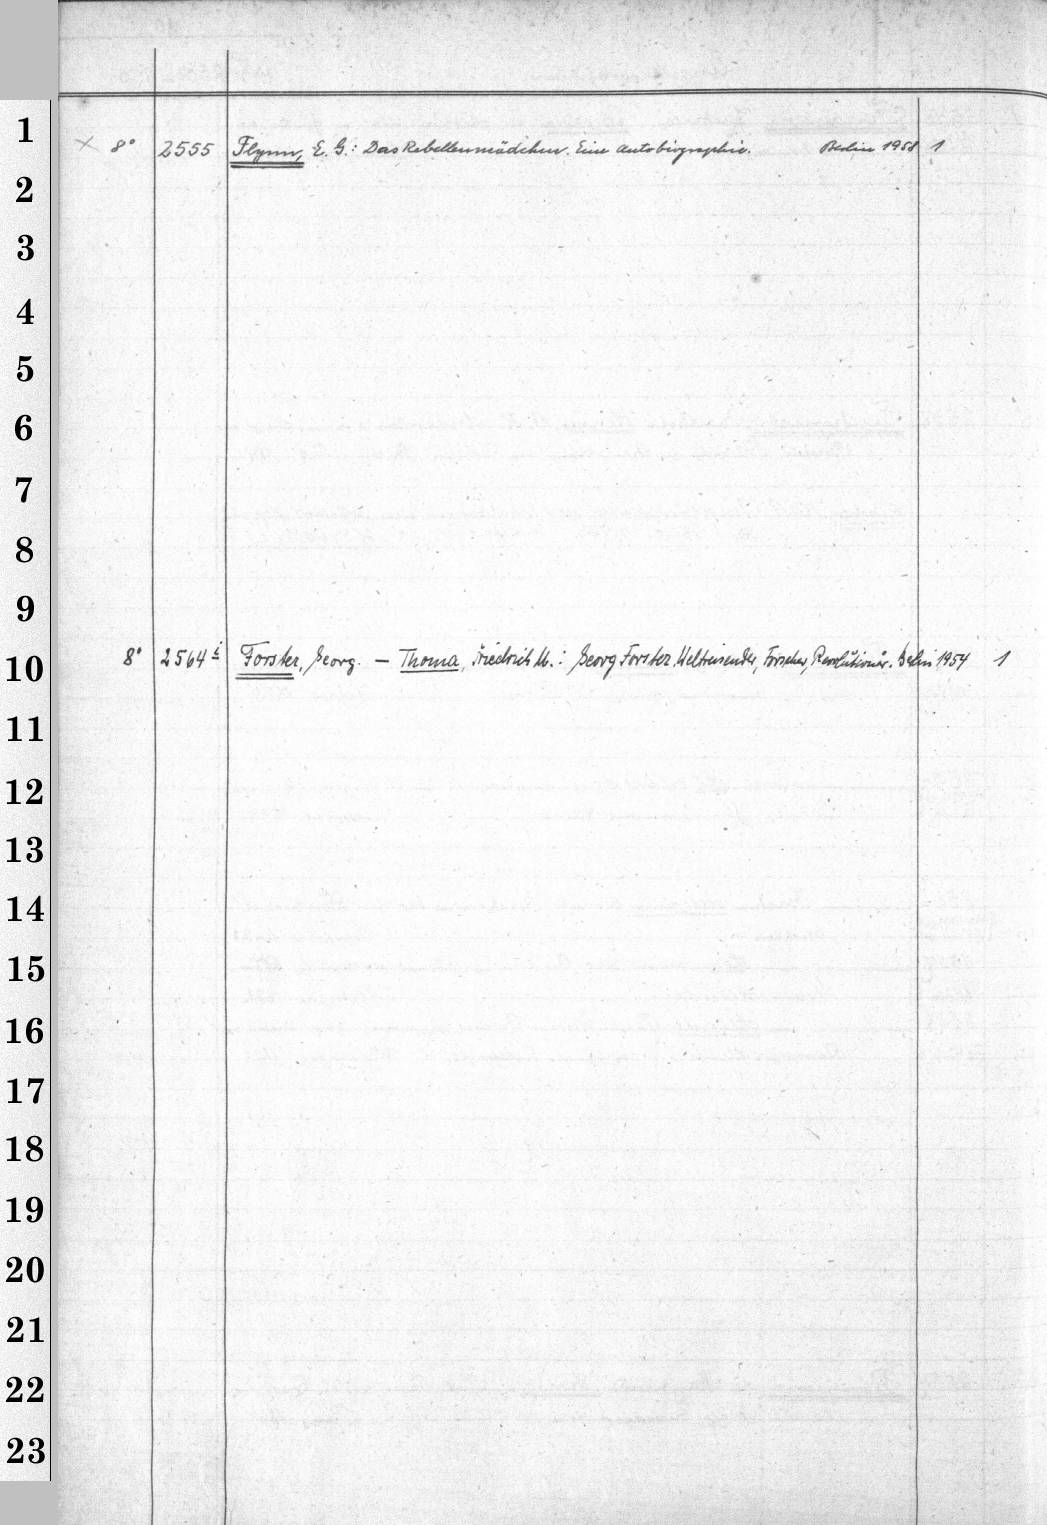 1
× 8° 2555 Flynn, E. G.: Das Rebellenmädchen. Eine Autobiographie. Berlin 1958 1
2
3
4
5
6
7
8
9
10
8° 2564 i Forster, Georg. — Thoma, Friedrich M.: Georg Forster, Weltreisender, Forscher, Revolutionär. Berlin 1954 1
11
12
13
14
15
16
17
18
19
20
21
22
23